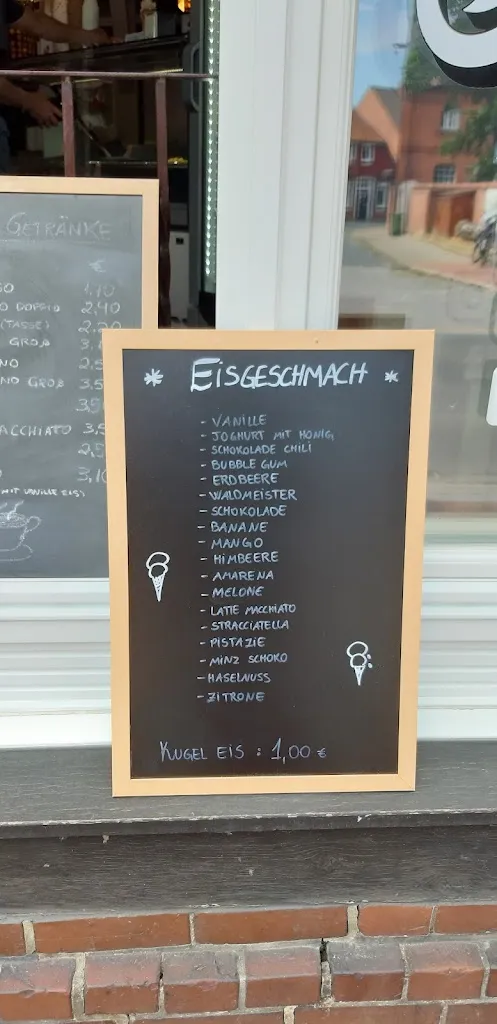 GETRÄNKE
€
1,10
O DOPPIO 2,40
(TASSE)
GROß
NO
NO GROß 3,5
ACCHIATO 3,5
3,10
MIT VANILLE EIS)
* EISGESCHMACH *
- VANILLE
- JOGHURT MIT HONIG
- SCHOKOLADE CHILI
- BUBBLE GUM
- ERDBEERE
- WALDMEISTER
- SCHOKOLADE
- BANANE
- MANGO
- HIMBEERE
- AMARENA
- MELONE
- LATTE MACCHIATO
- STRACCIATELLA
- PISTAZIE
- MINZ SCHOKO
- HASELNUSS
- ZITRONE
KUGEL EIS : 1,00 €